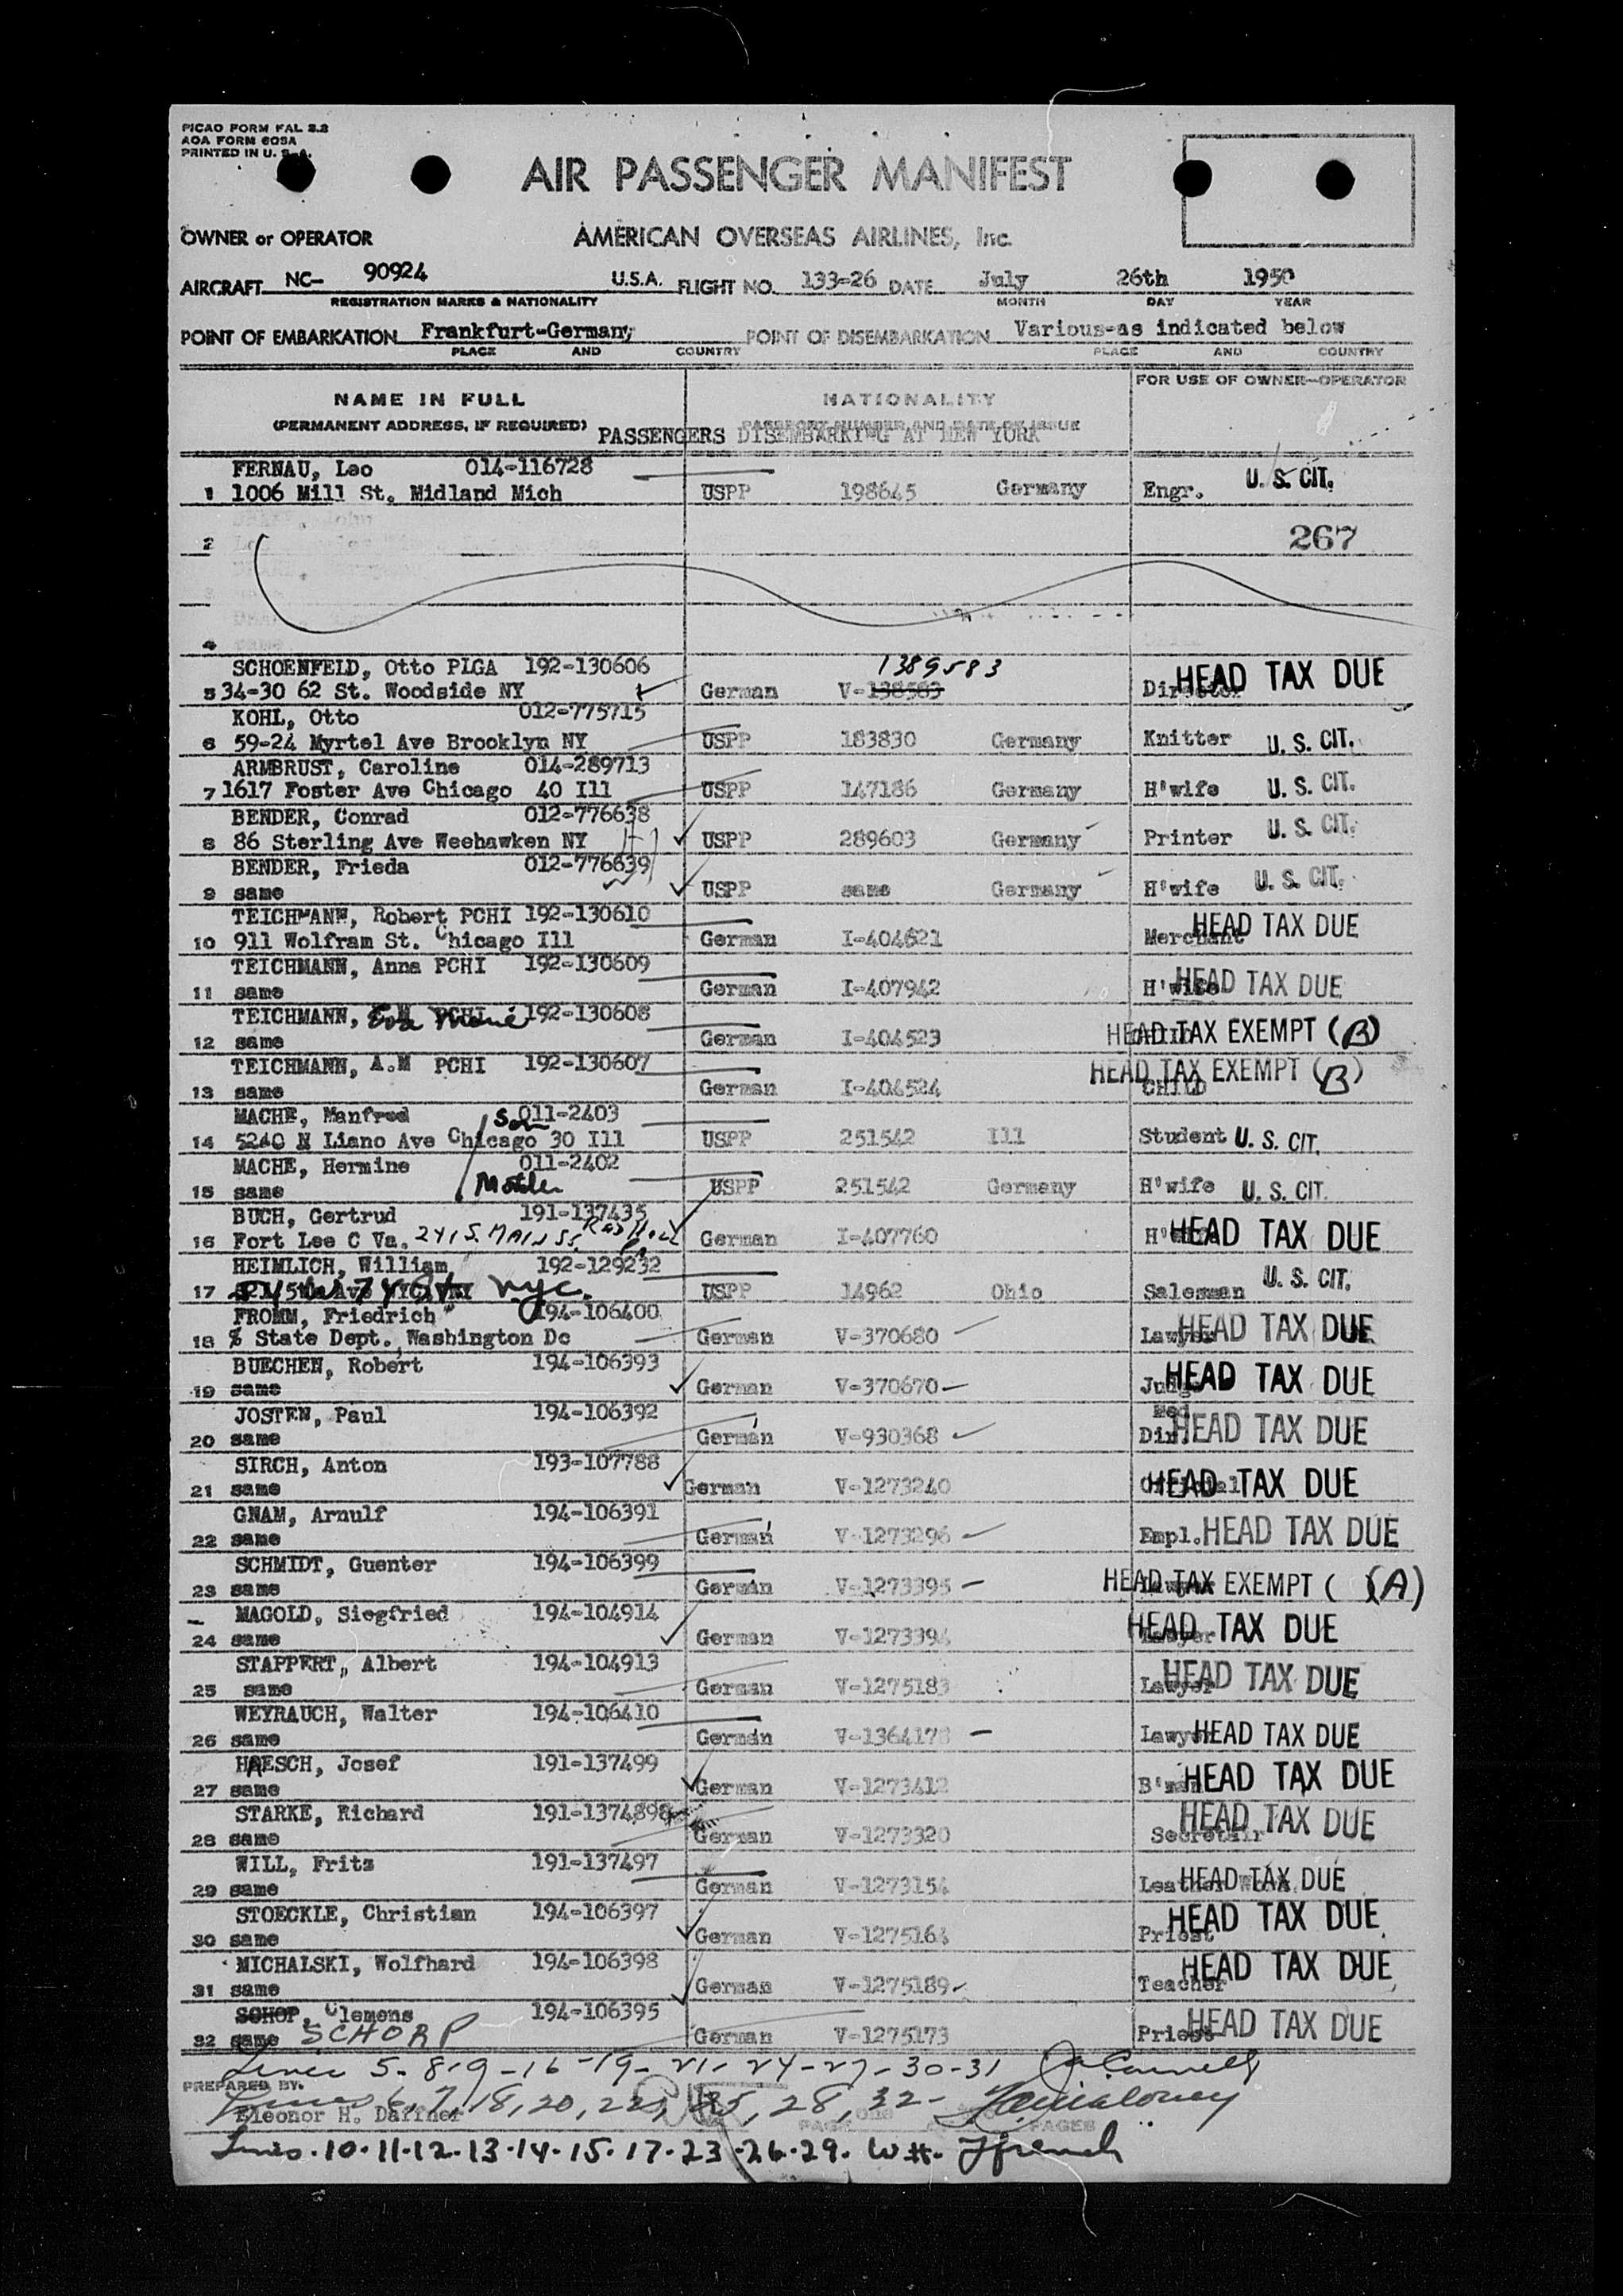 PICAO FORM FAL 3.2
AOA FORM 605A
PRINTED IN U. S. A.
AIR PASSENGER MANIFEST
OWNER or OPERATOR AMERICAN OVERSEAS AIRLINES, Inc.
AIRCRAFT NC- 90924 U.S.A. FLIGHT NO. 133-26 DATE July 26th 1950
REGISTRATION MARKS & NATIONALITY MONTH DAY YEAR
POINT OF EMBARKATION Frankfurt-Germany POINT OF DISEMBARKATION Various-as indicated below
PLACE AND COUNTRY PLACE AND COUNTRY
NAME IN FULL NATIONALITY FOR USE OF OWNER-OPERATOR
(PERMANENT ADDRESS, IF REQUIRED) PASSPORT NUMBER AND DATE OF ISSUE
PASSENGERS DISEMBARKING AT NEW YORK
FERNAU, Leo 014-116728
1 1006 Mill St. Midland Mich USPP 198645 Germany Engr. U. S. CIT.
2 267
3
4
SCHOENFELD, Otto PLGA 192-130606 1389583
5 34-30 62 St. Woodside NY German V-138583 Director HEAD TAX DUE
KOHL, Otto 012-775715
6 59-24 Myrtel Ave Brooklyn NY USPP 183830 Germany Knitter U. S. CIT.
ARMBRUST, Caroline 014-289713
7 1617 Foster Ave Chicago 40 Ill USPP 147186 Germany H'wife U. S. CIT.
BENDER, Conrad 012-776638
8 86 Sterling Ave Weehawken NY USPP 289603 Germany Printer U. S. CIT.
BENDER, Frieda 012-776639
9 same USPP same Germany H'wife U. S. CIT.
TEICHMANN, Robert PCHI 192-130610
10 911 Wolfram St. Chicago Ill German I-404521 Merchant HEAD TAX DUE
TEICHMANN, Anna PCHI 192-130609
11 same German I-407942 H'wife HEAD TAX DUE
TEICHMANN, Eva Marie PCHI 192-130608
12 same German I-404523 HEAD TAX EXEMPT (B)
TEICHMANN, A.M PCHI 192-130607
13 same German I-404524 CHILD HEAD TAX EXEMPT (B)
MACHE, Manfred Son 011-2403
14 5240 N Liano Ave Chicago 30 Ill USPP 251542 Ill Student U. S. CIT.
MACHE, Hermine 011-2402
15 same Mother USPP 251542 Germany H'wife U. S. CIT.
BUCH, Gertrud 191-137435
16 Fort Lee C Va. 241 S. MAIN ST. German I-407760 H'wife HEAD TAX DUE
HEIMLICH, William 192-129232
17 nyc. USPP 14962 Ohio Salesman U. S. CIT.
FROMM, Friedrich 194-106400
18 % State Dept. Washington Dc German V-370680 Lawyer HEAD TAX DUE
BUECHEN, Robert 194-106393
19 same German V-370670 Judge HEAD TAX DUE
JOSTEN, Paul 194-106392 Med
20 same German V-930368 Dir. HEAD TAX DUE
SIRCH, Anton 193-107788
21 same German V-1273240 Official HEAD TAX DUE
GNAM, Arnulf 194-106391
22 same German V-1273296 Empl. HEAD TAX DUE
SCHMIDT, Guenter 194-106399
23 same German V-1273395 Lawyer HEAD TAX EXEMPT ( )(A)
MAGOLD, Siegfried 194-104914
24 same German V-1273394 Lawyer HEAD TAX DUE
STAPPERT, Albert 194-104913
25 same German V-1275183 Lawyer HEAD TAX DUE
WEYRAUCH, Walter 194-106410
26 same German V-1364178 Lawyer HEAD TAX DUE
HAESCH, Josef 191-137499
27 same German V-1273412 B'man HEAD TAX DUE
STARKE, Richard 191-137489
28 same German V-1273320 Secretair HEAD TAX DUE
WILL, Fritz 191-137497
29 same German V-1273154 Leather Work. HEAD TAX DUE
STOECKLE, Christian 194-106397
30 same German V-1275164 Priest HEAD TAX DUE
MICHALSKI, Wolfhard 194-106398
31 same German V-1275189 Teacher HEAD TAX DUE
SCHOP, Clemens 194-106395
32 same SCHORP German V-1275173 Priest HEAD TAX DUE
Lines 5-8-9-16-19-21-24-27-30-31
PREPARED BY:
Lines 6, 7, 18, 20, 22, 25, 28, 32-
Eleonor H. Daffner PAGE one PAGES
Lines.10.11.12.13.14.15.17.23.26.29. W.H. Ffrench